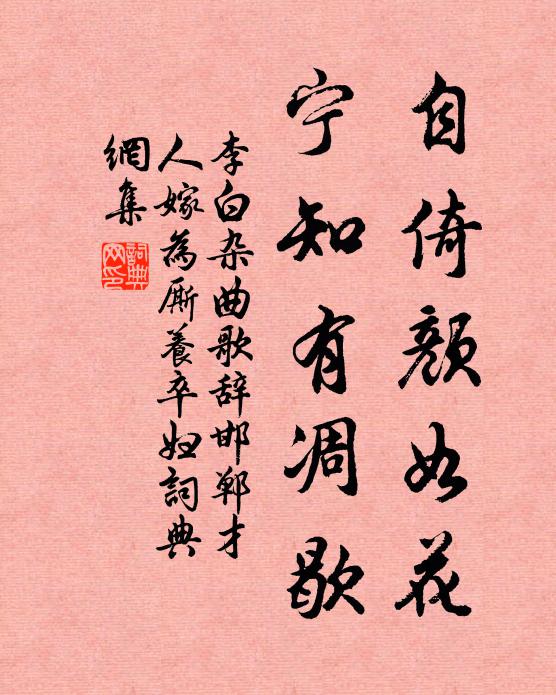 自倚颜如花
宁知有凋歇
李白杂曲歌辞邯郸才
人嫁為厮養卒妇詞典
網集
詞典
网印